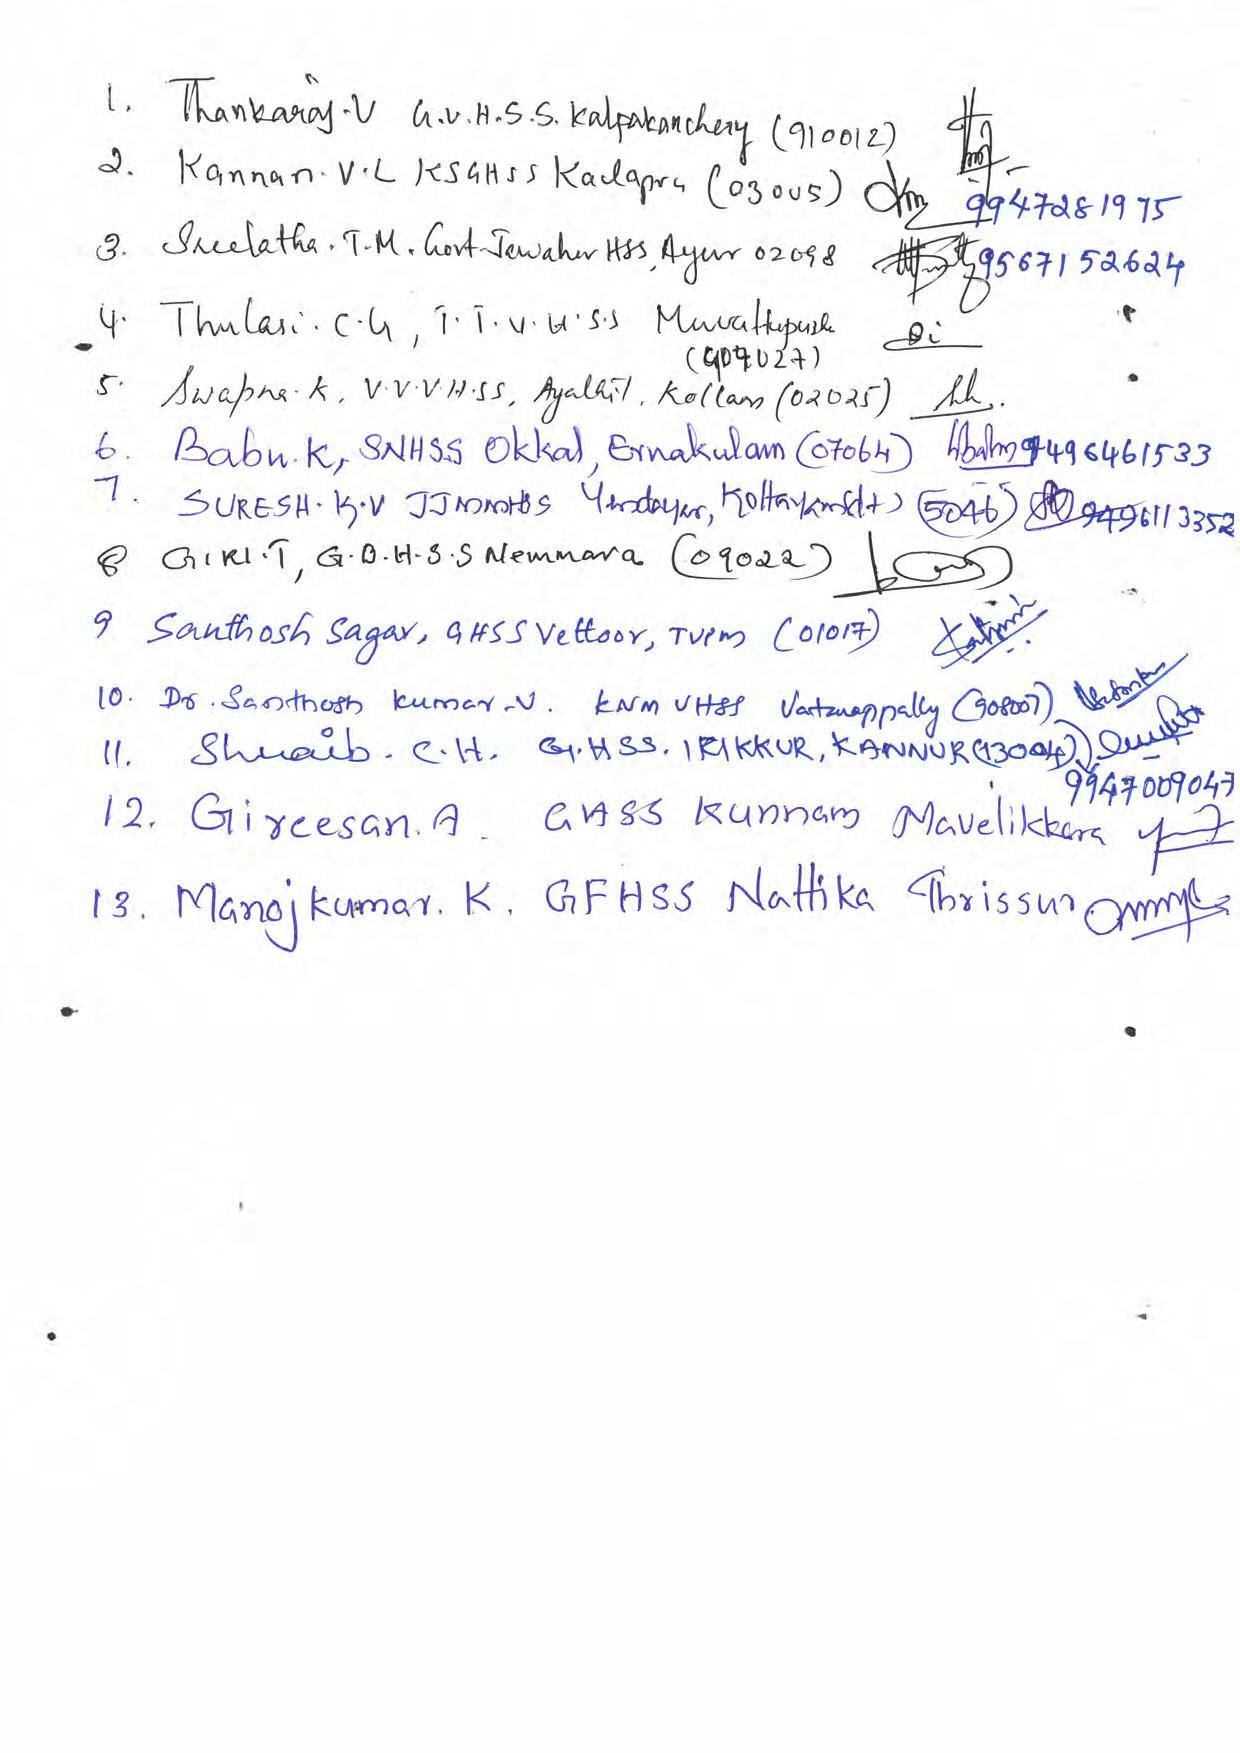 1. Thankaraj.V G.V.H.S.S. Kalpakanchery (910012)
2. Kannan.V.L KSGHSS Kadapra (03005) 9947281975
3. Sreelatha.T.M. Govt Jawaher HSS, Ayur 02098 9567152624
4. Thulasi.C.G, T.T.V.H.S.S
(907027)
5. Swapna.K, V.V.V.H.SS, Kollam (02025)
6. Babu.K, SNHSS Okkal, Ernakulam (07064) 9496461533
7. SURESH.K.V (5046) 9496113352
8 GIRI.T, G.B.H.S.S Nemmara (09022)
9 Santhosh Sagar, GHSS Vettoor, TVPM (01017)
10. Dr. Santhosh Kumar.N. KNM VHSS (908007)
11. Shuaib.C.H. G.HSS. IRIKKUR, KANNUR (13004)
9947009047
12. Gireesan.A. GHSS Kunnam Mavelikkara
13. Manojkumar.K. GFHSS Nattika Thrissur